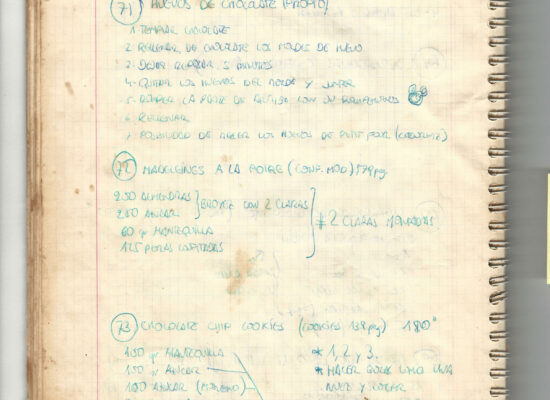 71) HUEVOS DE CHOCOLATE (PROPIO)
1 TEMPERAR CHOCOLATE
2 RELLENAR DE CHOCOLATE LOS MOLDES DE HUEVO
3 DEJAR REPOSAR 5 MINUTOS
4 QUITAR LOS HUEVOS DEL MOLDE Y JUNTAR
5 ROMPER LA PARTE DE ARRIBA CON UN
6 RELLENAR
7 POSIBILIDAD DE HACER LOS HUEVOS DE PETIT FOUR
72) MADELEINES A LA POIRE (CONF. MOD) 574 pg
250 ALMENDRAS
250 AZUCAR } BROYÉE CON 2 CLARAS
60 gr MANTEQUILLA
125 PERAS CONFITADAS
* 2 CLARAS MONTADAS
73) CHOCOLATE CHIP COOKIES (COOKIES 138 pg) 180°
150 gr MANTEQUILLA
150 gr AZUCAR
100 AZUCAR (MORENO)
* 1, 2 y 3.
* HACER BOLAS COMO UNA
NUEZ Y COCER